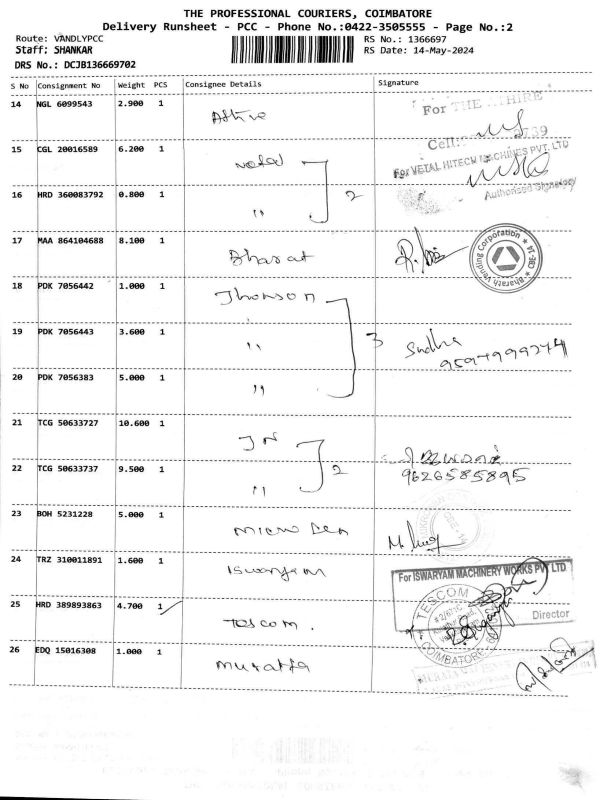 THE PROFESSIONAL COURIERS, COIMBATORE
Delivery Runsheet - PCC - Phone No.:0422-3505555 - Page No.:2
Route: VANDLYPCC
RS No.: 1366697
Staff: SHANKAR
RS Date: 14-May-2024
DRS No.: DCJB136669702
S No Consignment No Weight PCS Consignee Details Signature
14 NGL 6099543 2.900 1
For THE
Cell:
15 CGL 20016589 6.200 1
For VETAL HITECH MACHINES PVT. LTD
Authorised Signatory
16 HRD 360083792 0.800 1 " 2
17 MAA 864104688 8.100 1 Bharat
Bharath Vending Corporation
18 PDK 7056442 1.000 1 Jhonson
19 PDK 7056443 3.600 1 " 3 Sudha
20 PDK 7056383 5.000 1 "
21 TCG 50633727 10.600 1 JN
22 TCG 50633737 9.500 1 " 2 9626585895
23 BOH 5231228 5.000 1 micro
24 TRZ 310011891 1.600 1 Iswaryam
For ISWARYAM MACHINERY WORKS PVT LTD
Director
25 HRD 389893863 4.700 1 Tescom.
TESCOM
COIMBATORE
26 EDQ 15016308 1.000 1